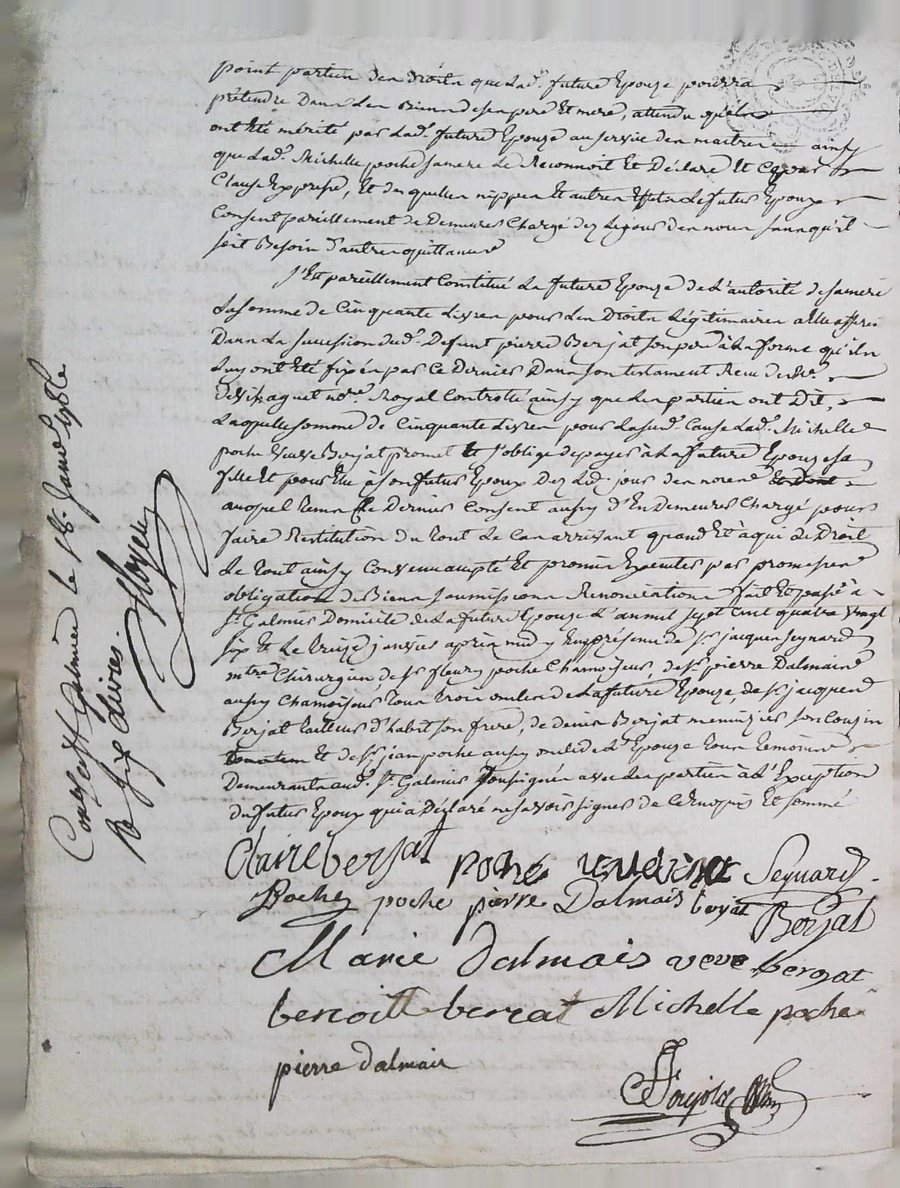 point partie des droits que lad. future Epouze pourra
prétendre Dans les Biens de ses pere Et mere, attendu qu'ils
ont été mérité par lad. future Epouze au service des maitres ainsy
que lad. Michelle poche sa mere Le Reconnoit Et Déclare Et Ce par
Clause Expresse, Et desquelles nippes Et autres Effets Le futur Epoux
Consent pareillement de Demeurer Chargé dez Le jour des noces sans qu'il
soit Besoin d'autre quittance
s'Est pareillement Constitué La future Epouze de L'autorité de sa mere
La somme de Cinquante Livres pour Les Droits Légitimaires a Elle
Dans La succession dud. Defunt pierre Berjat son pere à La forme qu'ils
Luy ont été fixés par Ce Dernier Dans son testament Recu de Me
not.re Royal Controlé ainsy que Les parties ont Dit,
Laquelle somme de Cinquante Livres pour La susd. Cause Lad. Michelle
poche veuve Berjat promet Et s'oblige de payer à La future Epouze sa
fille Et pour Elle à son futur Epoux Dez Led. jour des noces
auquel tems Ce Dernier Consent aussy d'En demeurer Chargé pour
faire Restitution du tout Le Cas arrivant quand Et à qui De Droit
Le tout ainsy Convenu accepté Et promis Executer par promesses
obligation de Biens soumissions Renonciations fait Et passé à
St. Galmier Domicile de La future Epouze L'an mil sept Cent quatre vingt
six Et Le treize janvier après midy En présence de Sr. jacques Seynard
mtre Chirurgien de Sr. fleury poche Chamoiseur, de Sr. pierre Dalmais
aussy Chamoiseur tous trois oncles de La future Epouze, de Sr. jacques
Berjat tailleur d'habit son frere, de denis Berjat menuizier son Cousin
Et de Sr. jean poche aussy oncle de Lad. Epouze tous temoins
Demeurants aud. St. Galmier soussignés avec Les parties à L'Exception
du futur Epoux qui a Déclaré ne savoir signer de Ce Enquis Et sommé
Claire berjat poche Seynard
Poche poche pierre Dalmais berjat Berjat
Marie dalmais veve bergat
benoitt bercat Michelle poche
pierre dalmais
Con.lé à St. Galmier le 18. Janv. 1786
R. six Livres.